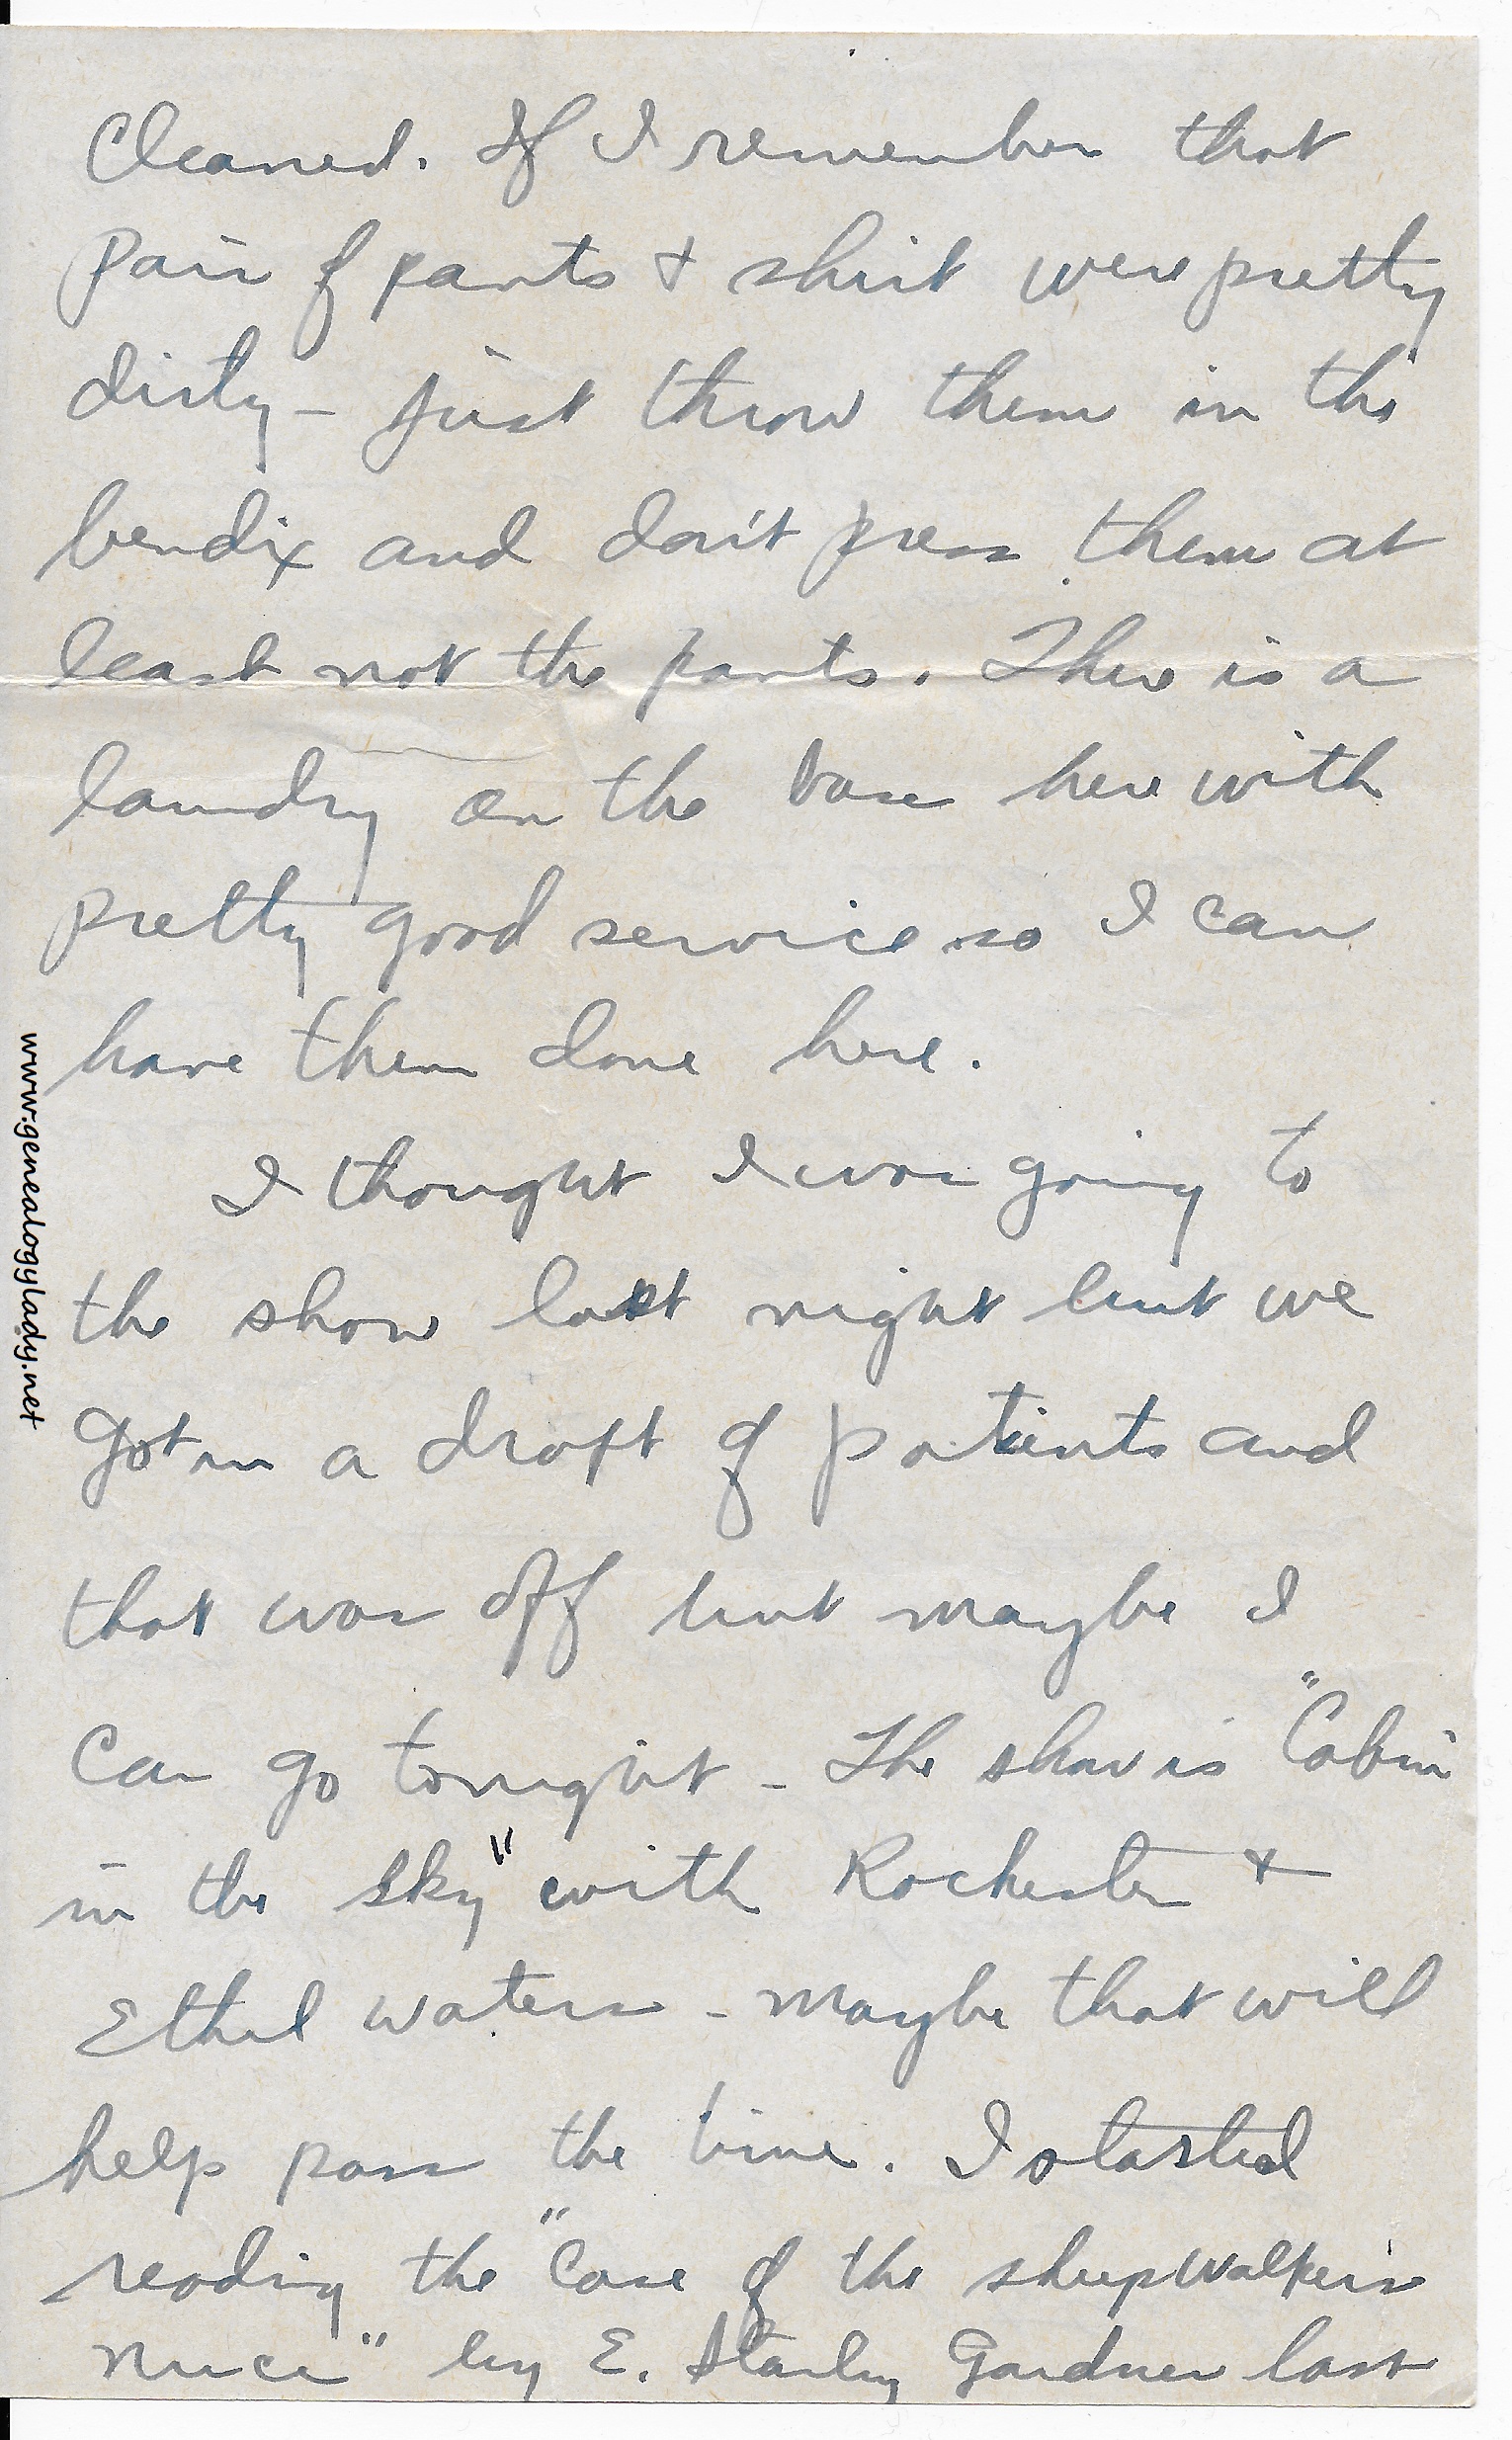 Cleaned. If I remember that
pair of pants + shirt were pretty
dirty - just throw them in the
bendix and don't press them at
least not the pants. There is a
laundry on the base here with
pretty good service so I can
have them done here.
I thought I was going to
the show last night but we
got in a draft of patients and
that was off but maybe I
can go tonight - The show is "Cabin
in the Sky" with Rochester +
Ethel Waters - maybe that will
help pass the time. I started
reading the "Case of the sleepwalkers
niece" by E. Stanley Gardner last
www.genealogylady.net